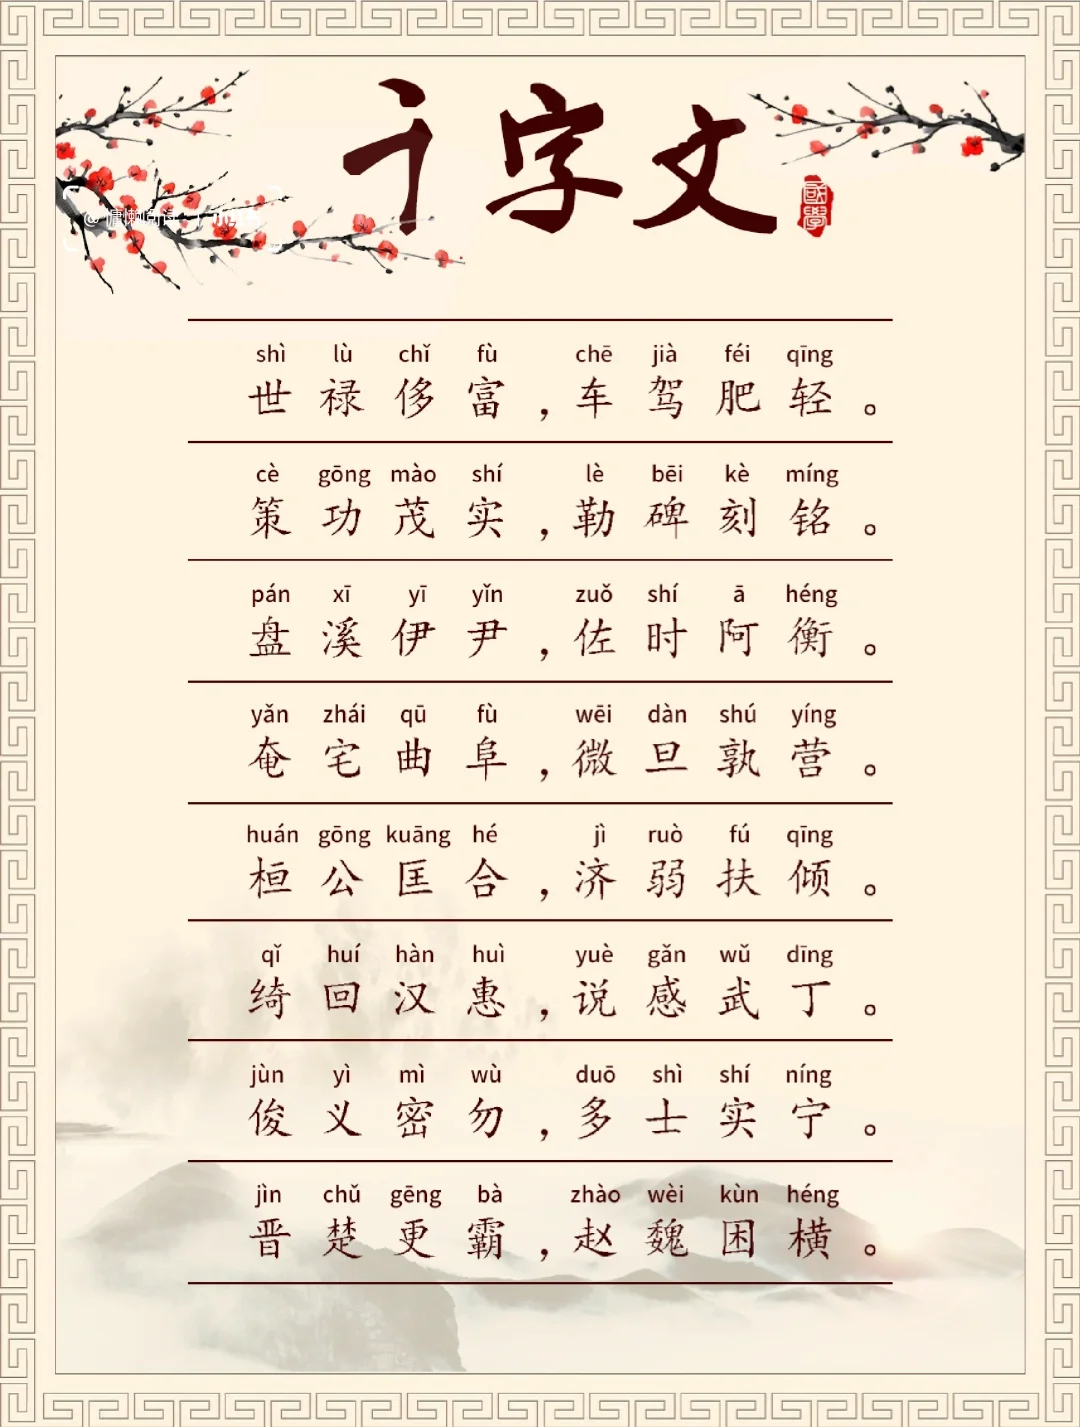 千字文
國學
shì lù chǐ fù chē jià féi qīng
世禄侈富，车驾肥轻。
cè gōng mào shí lè bēi kè míng
策功茂实，勒碑刻铭。
pán xī yī yǐn zuǒ shí ā héng
盘溪伊尹，佐时阿衡。
yǎn zhái qū fù wēi dàn shú yíng
奄宅曲阜，微旦孰营。
huán gōng kuāng hé jì ruò fú qīng
桓公匡合，济弱扶倾。
qǐ huí hàn huì yuè gǎn wǔ dīng
绮回汉惠，说感武丁。
jùn yì mì wù duō shì shí níng
俊义密勿，多士实宁。
jìn chǔ gēng bà zhào wèi kùn héng
晋楚更霸，赵魏困横。